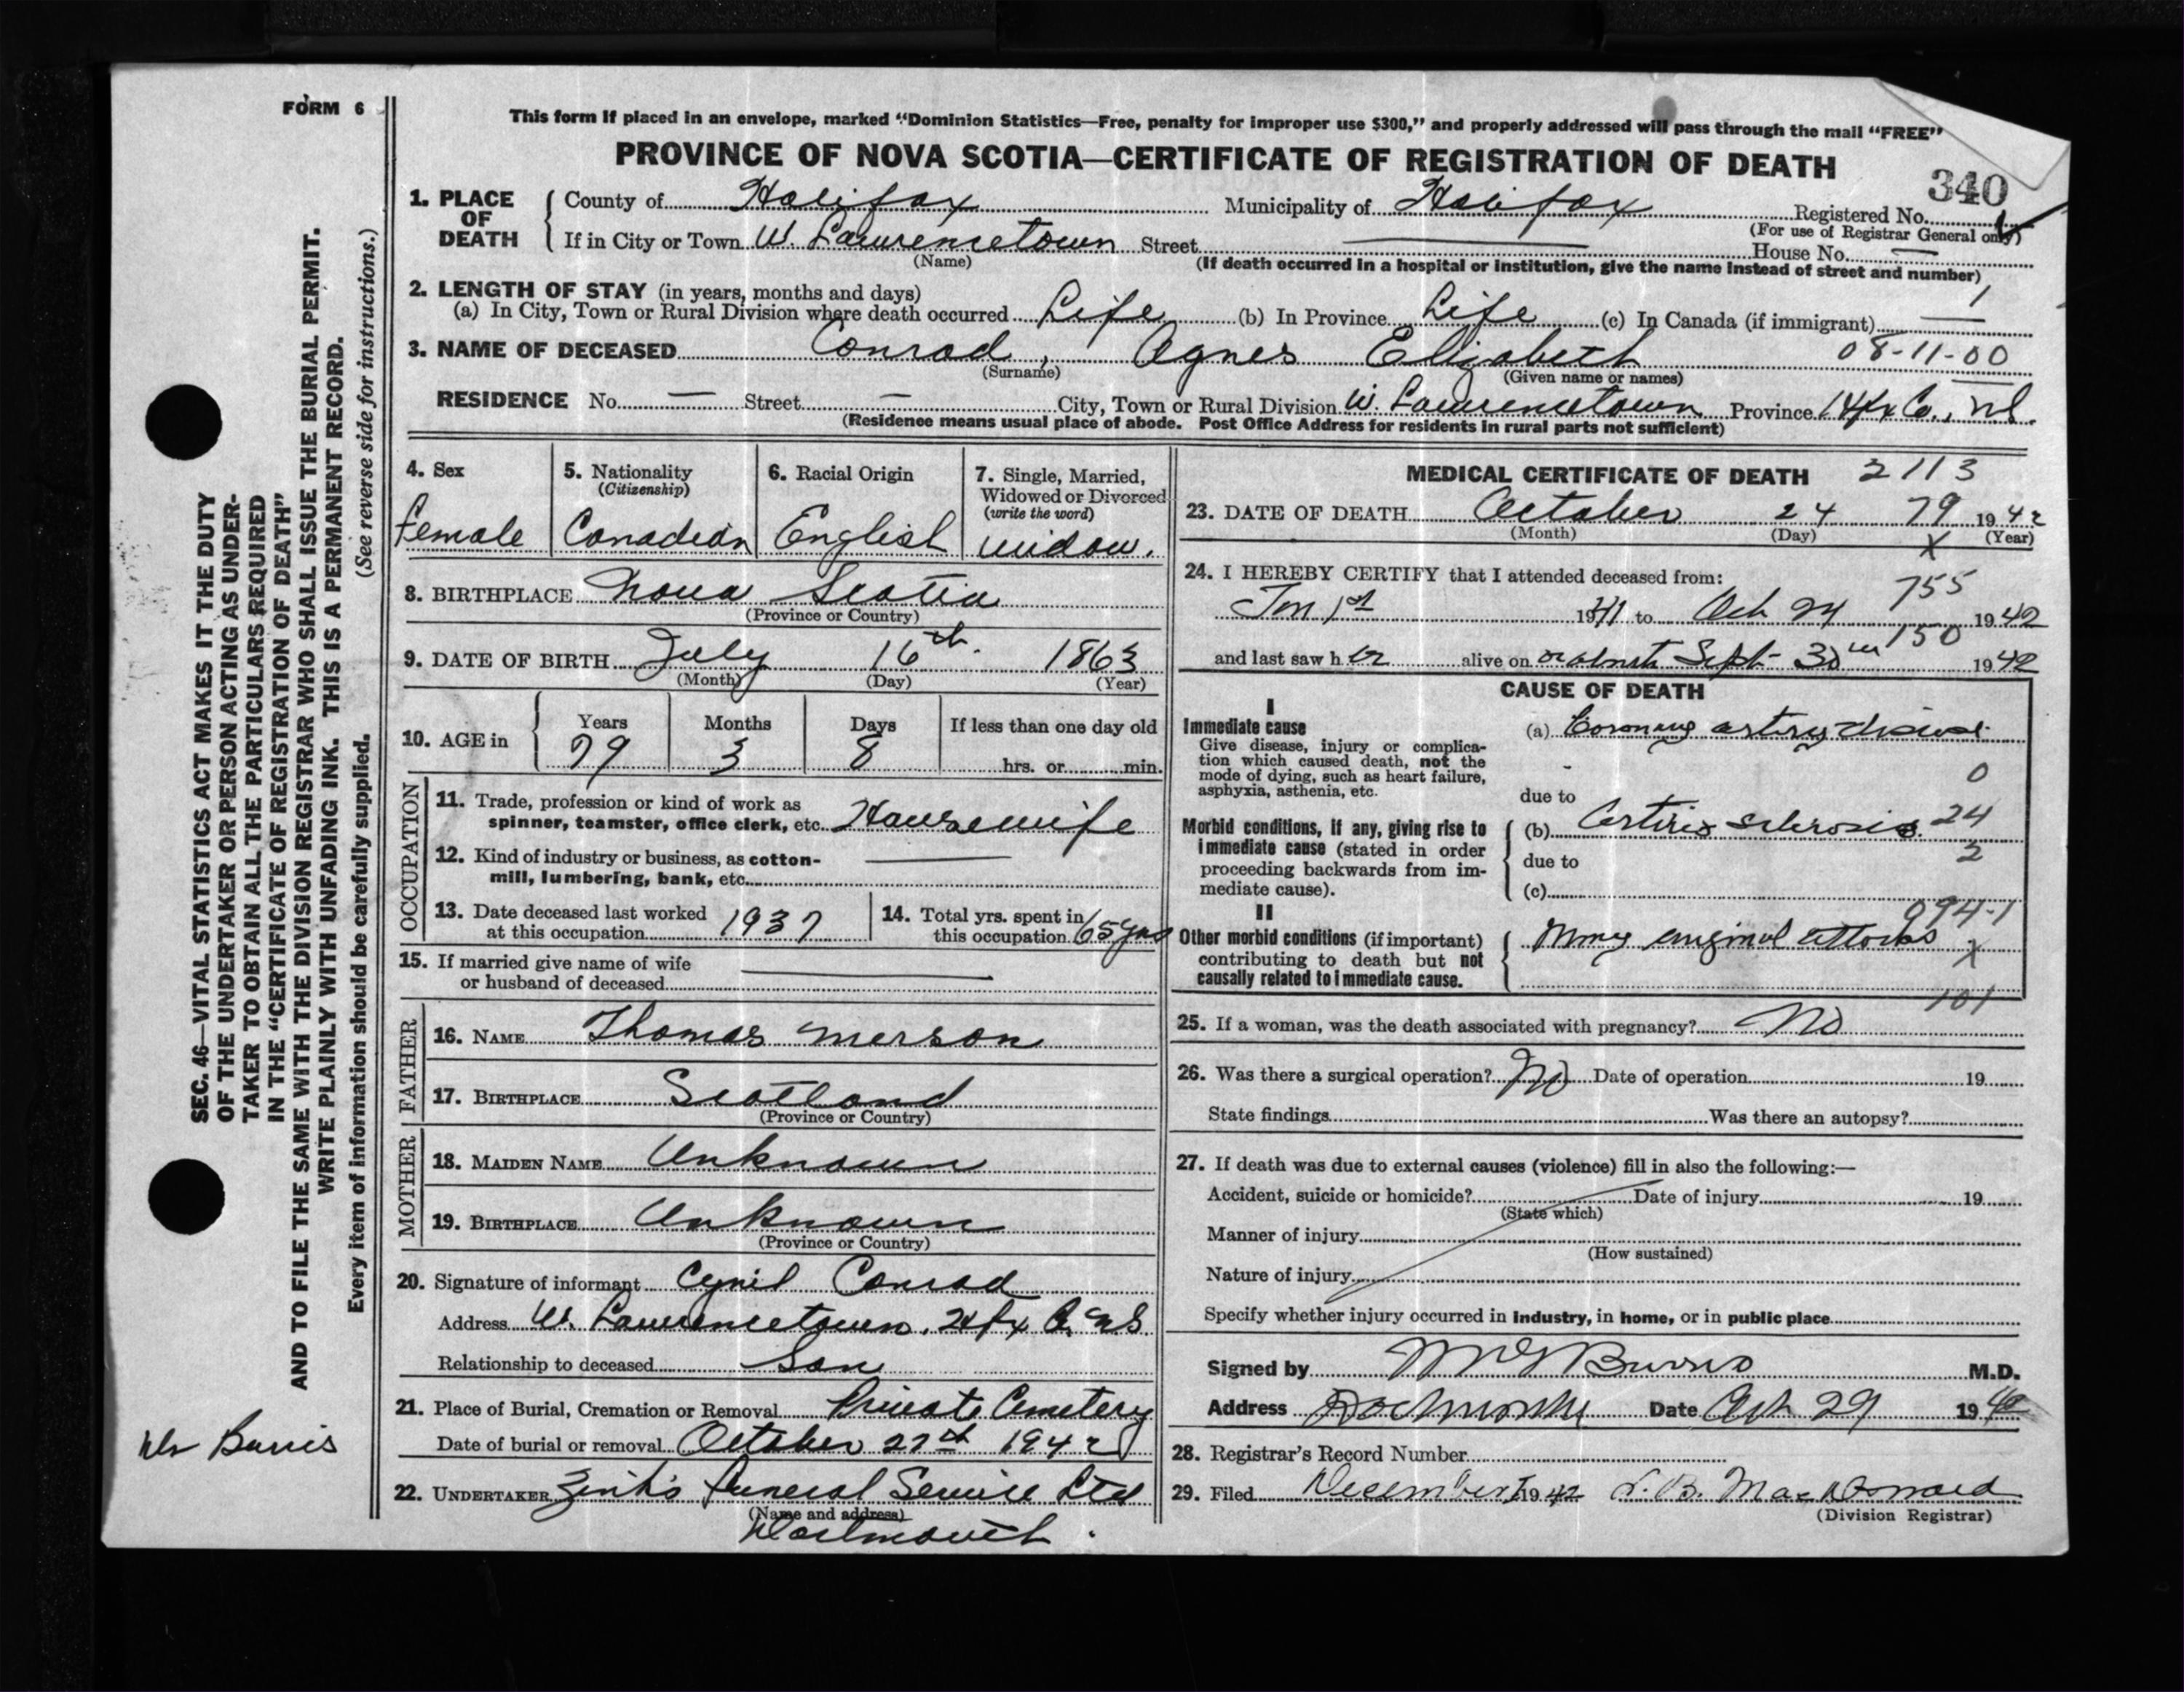 FORM 6
This form if placed in an envelope, marked "Dominion Statistics—Free, penalty for improper use $300," and properly addressed will pass through the mail "FREE"
PROVINCE OF NOVA SCOTIA—CERTIFICATE OF REGISTRATION OF DEATH
340
1. PLACE OF DEATH County of Halifax Municipality of Halifax Registered No.
(For use of Registrar General only)
If in City or Town W. Lawrencetown Street — House No. —
(Name) (If death occurred in a hospital or institution, give the name instead of street and number)
2. LENGTH OF STAY (in years, months and days) 1
(a) In City, Town or Rural Division where death occurred Life (b) In Province Life (c) In Canada (if immigrant) —
3. NAME OF DECEASED Conrad, Agnes Elizabeth 08-11-00
(Surname) (Given name or names)
RESIDENCE No. — Street — City, Town or Rural Division W. Lawrencetown Province Hfx Co., NS.
(Residence means usual place of abode. Post Office Address for residents in rural parts not sufficient)
4. Sex
Female
5. Nationality
(Citizenship)
Canadian
6. Racial Origin
English
7. Single, Married,
Widowed or Divorced
(write the word)
widow.
8. BIRTHPLACE Nova Scotia
(Province or Country)
9. DATE OF BIRTH July 16th. 1863
(Month) (Day) (Year)
10. AGE in Years Months Days If less than one day old
79 3 8 hrs. or min.
OCCUPATION
11. Trade, profession or kind of work as
spinner, teamster, office clerk, etc. Housewife
12. Kind of industry or business, as cotton-
mill, lumbering, bank, etc. —
13. Date deceased last worked
at this occupation 1937
14. Total yrs. spent in
this occupation 65 yrs
15. If married give name of wife
or husband of deceased —
FATHER
16. NAME Thomas Merson
17. BIRTHPLACE Scotland
(Province or Country)
MOTHER
18. MAIDEN NAME Unknown
19. BIRTHPLACE Unknown
(Province or Country)
20. Signature of informant Cyril Conrad
Address W. Lawrencetown, Hfx Co. NS
Relationship to deceased Son
21. Place of Burial, Cremation or Removal Private Cemetery
Date of burial or removal October 27th 1942
22. UNDERTAKER Zink's Funeral Service Ltd
(Name and address)
Dartmouth.
MEDICAL CERTIFICATE OF DEATH 2113
23. DATE OF DEATH October 24 79 1942
(Month) (Day) X (Year)
24. I HEREBY CERTIFY that I attended deceased from:
755
Jan 1st 1941 to Oct 24 1942
150
and last saw her alive on Sept 30th 1942
CAUSE OF DEATH
I
Immediate cause
Give disease, injury or complica-
tion which caused death, not the
mode of dying, such as heart failure,
asphyxia, asthenia, etc.
(a) Coronary artery disease.
0
due to
Morbid conditions, if any, giving rise to
immediate cause (stated in order
proceeding backwards from im-
mediate cause).
(b) Arterio sclerosis. 24
due to 2
(c)
II
094-1
Other morbid conditions (if important)
contributing to death but not
causally related to immediate cause.
Many anginal attacks X
101
25. If a woman, was the death associated with pregnancy? No
26. Was there a surgical operation? No Date of operation 19
State findings Was there an autopsy?
27. If death was due to external causes (violence) fill in also the following:—
Accident, suicide or homicide? Date of injury 19
(State which)
Manner of injury
(How sustained)
Nature of injury
Specify whether injury occurred in industry, in home, or in public place
Signed by Burris M.D.
Address Dartmouth Date Oct 29 1942
28. Registrar's Record Number
29. Filed December 1942 MacDonald
(Division Registrar)
SEC. 46—VITAL STATISTICS ACT MAKES IT THE DUTY
OF THE UNDERTAKER OR PERSON ACTING AS UNDER-
TAKER TO OBTAIN ALL THE PARTICULARS REQUIRED
IN THE "CERTIFICATE OF REGISTRATION OF DEATH"
AND TO FILE THE SAME WITH THE DIVISION REGISTRAR WHO SHALL ISSUE THE BURIAL PERMIT.
WRITE PLAINLY WITH UNFADING INK. THIS IS A PERMANENT RECORD.
Every item of information should be carefully supplied. (See reverse side for instructions.)
Dr Burris